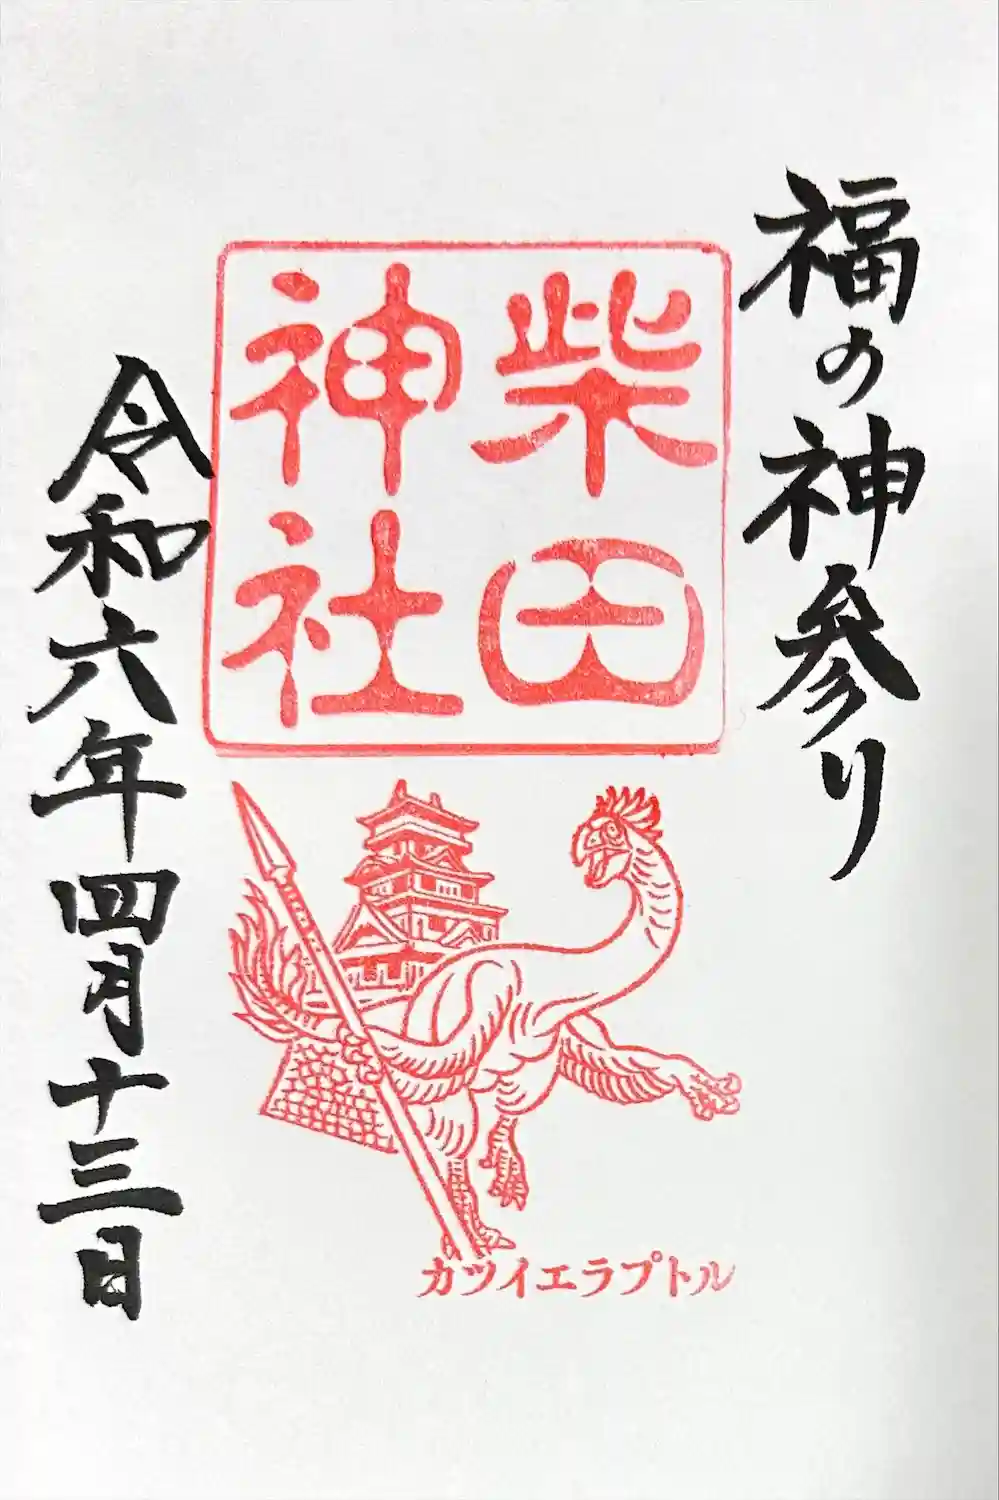 福の神参り
柴田
神社
令和六年四月十三日
カツイエラプトル